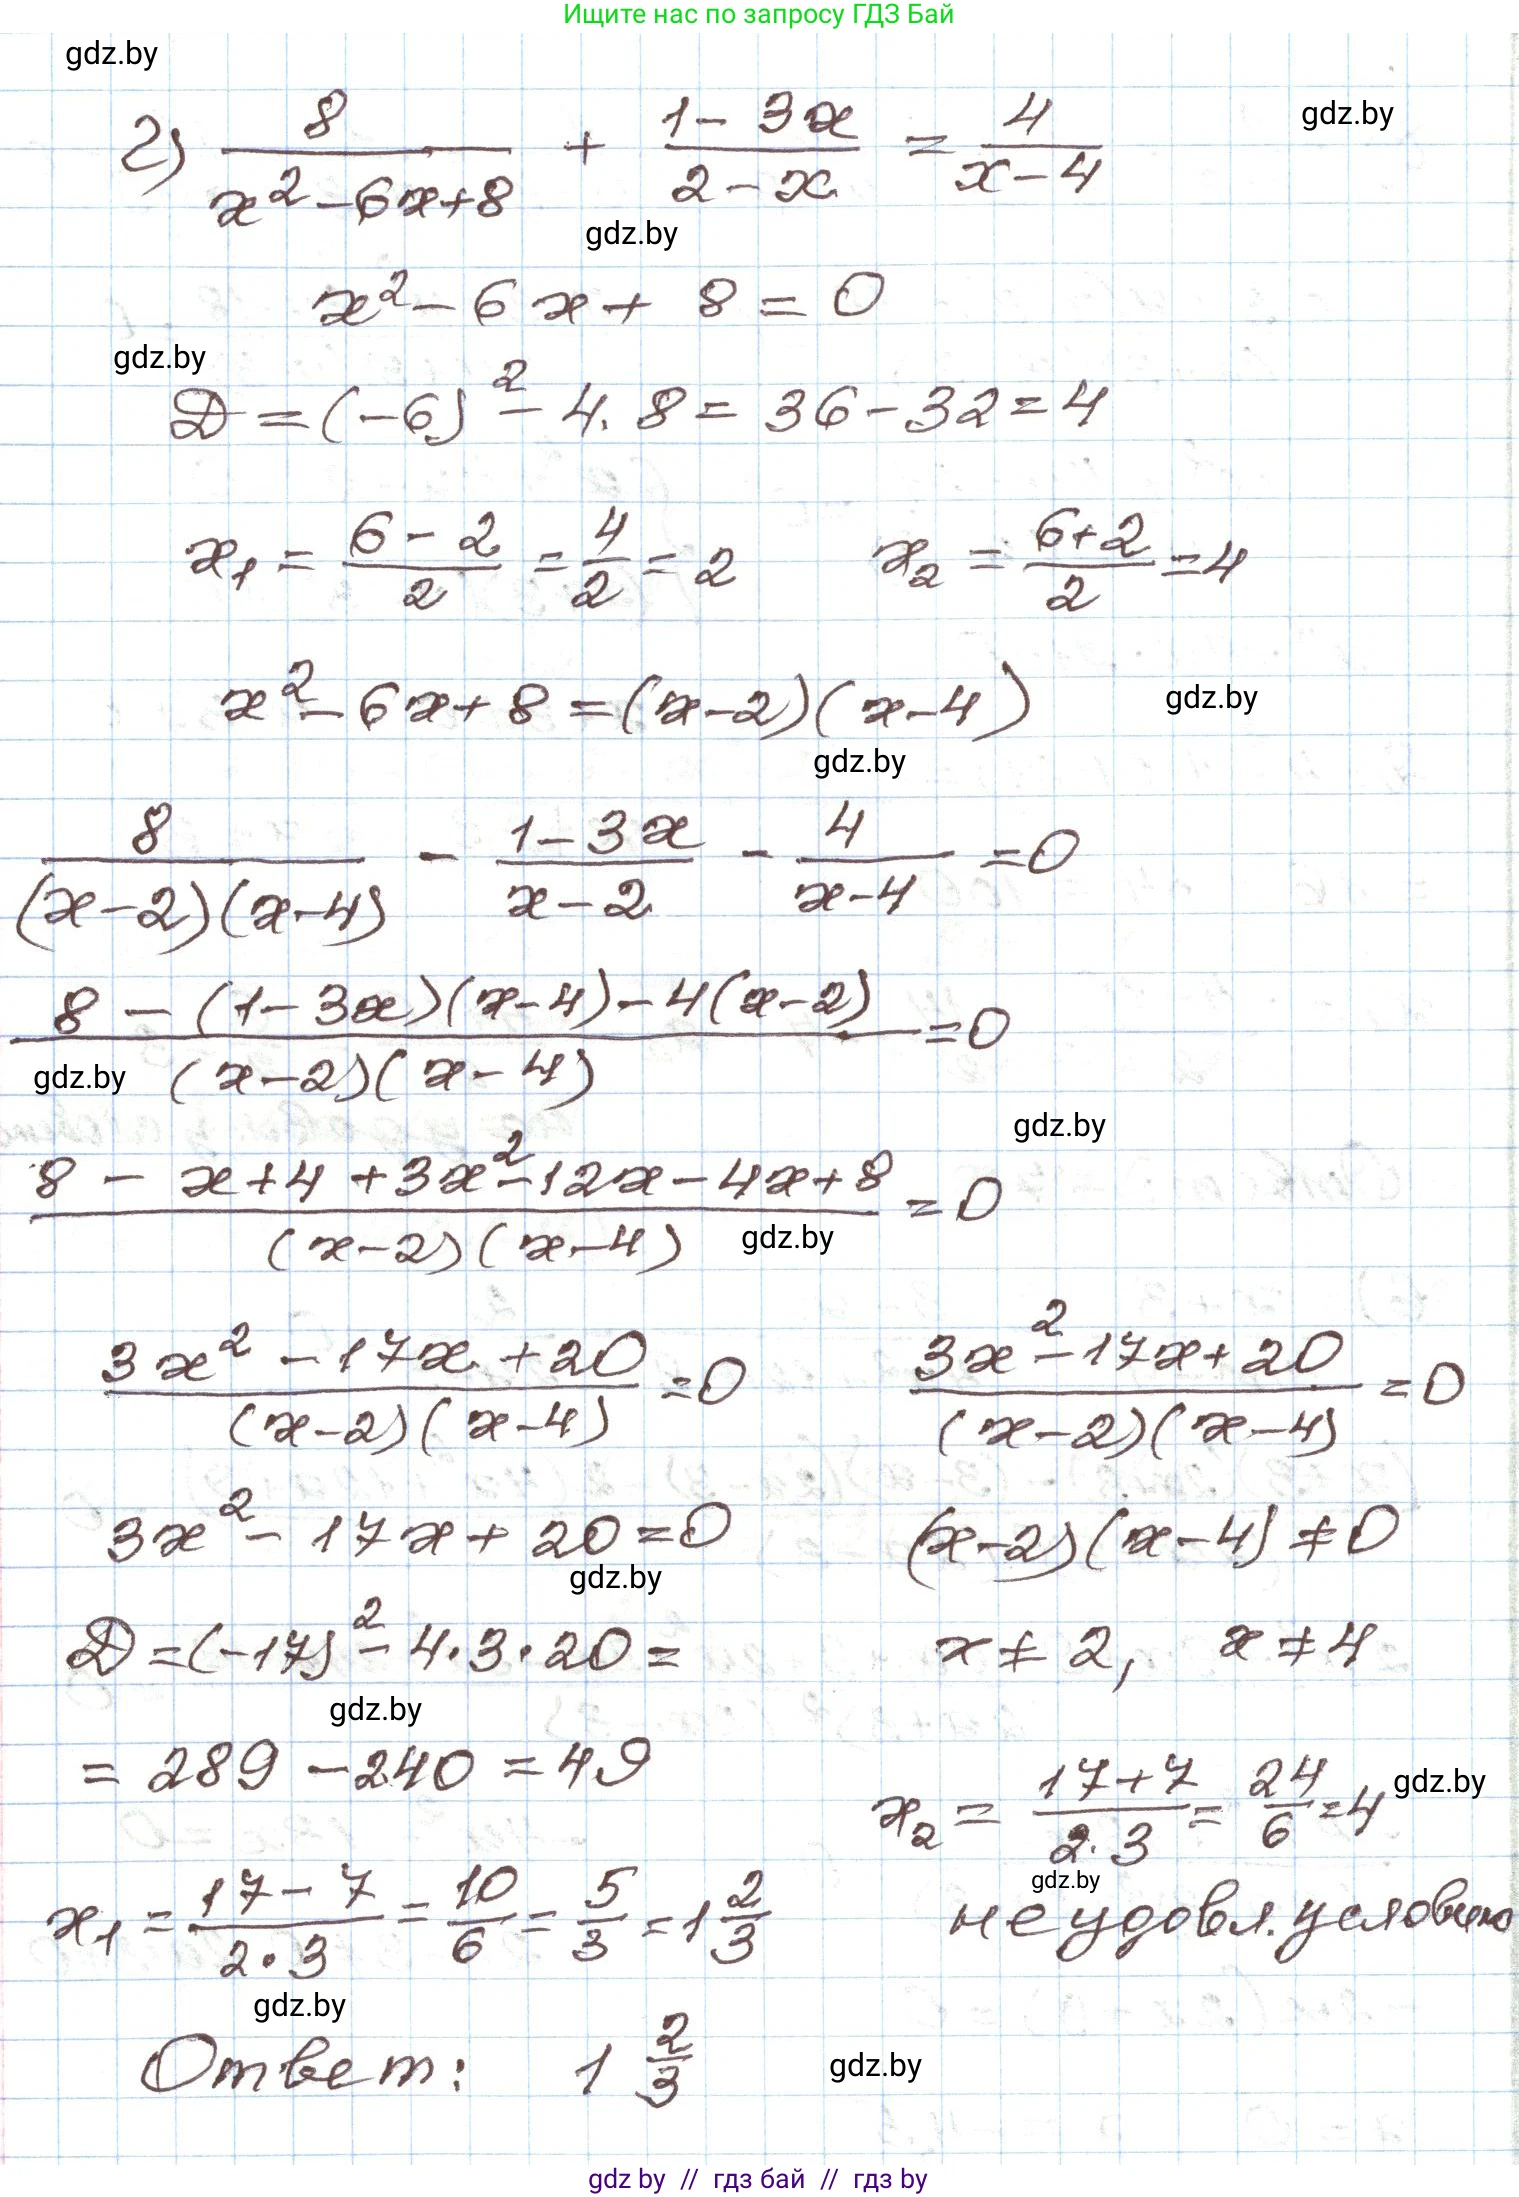 Ищите нас по запросу ГДЗ Бай
gdz.by
г) 8/(x² - 6x + 8) + (1 - 3x)/(2 - x) = 4/(x - 4)
gdz.by
gdz.by
x² - 6x + 8 = 0
gdz.by
D = (-6)² - 4 · 8 = 36 - 32 = 4
x₁ = (6 - 2)/2 = 4/2 = 2 x₂ = (6 + 2)/2 = 4
x² - 6x + 8 = (x - 2)(x - 4)
gdz.by
gdz.by
8/((x - 2)(x - 4)) - (1 - 3x)/(x - 2) - 4/(x - 4) = 0
(8 - (1 - 3x)(x - 4) - 4(x - 2))/((x - 2)(x - 4)) = 0
gdz.by
gdz.by
(8 - x + 4 + 3x² - 12x - 4x + 8)/((x - 2)(x - 4)) = 0
gdz.by
(3x² - 17x + 20)/((x - 2)(x - 4)) = 0 (3x² - 17x + 20)/((x - 2)(x - 4)) = 0
3x² - 17x + 20 = 0 (x - 2)(x - 4) ≠ 0
gdz.by
D = (-17)² - 4 · 3 · 20 = x ≠ 2, x ≠ 4
gdz.by
= 289 - 240 = 49
x₂ = (17 + 7)/(2 · 3) = 24/6 = 4
gdz.by
gdz.by
x₁ = (17 - 7)/(2 · 3) = 10/6 = 5/3 = 1 2/3 не удовл. условию
gdz.by
Ответ: 1 2/3
gdz.by
gdz by // гдз бай // гдз by